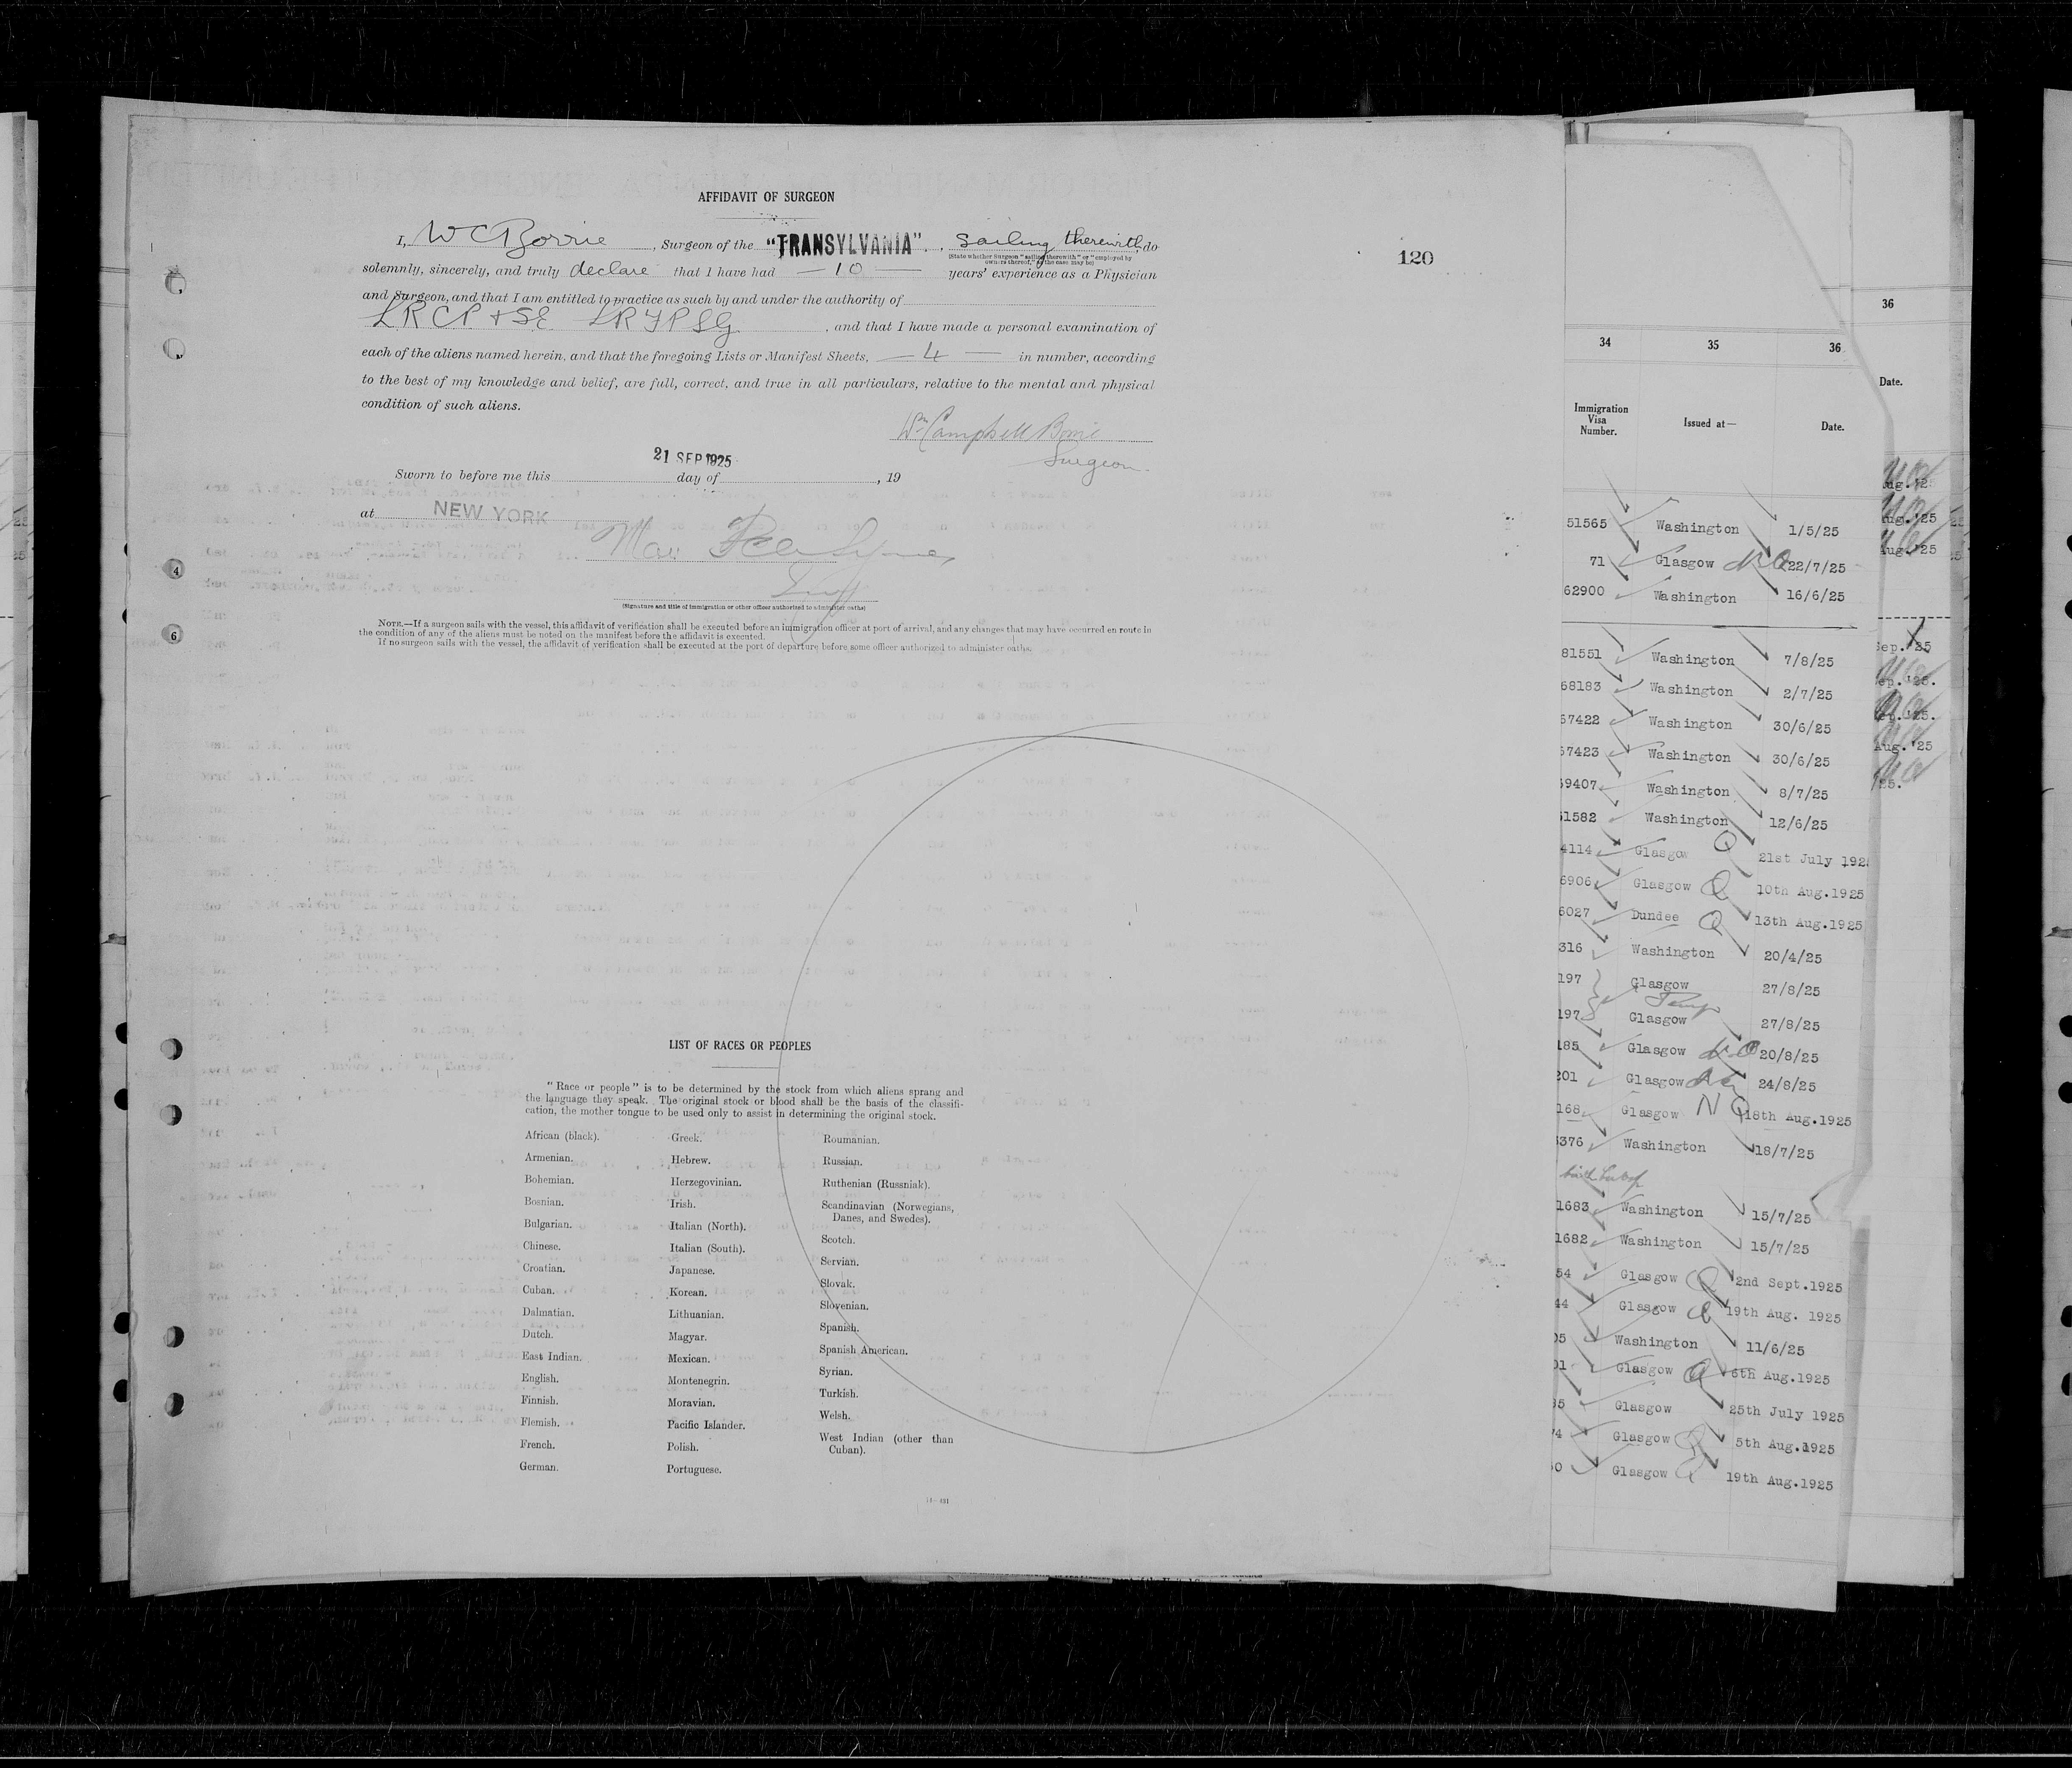 AFFIDAVIT OF SURGEON
I, W C Borrie, Surgeon of the "TRANSYLVANIA", sailing therewith, do
[State whether Surgeon "sailing therewith" or "employed by
owners thereof," as the case may be]
solemnly, sincerely, and truly declare that I have had — 10 — years' experience as a Physician
and Surgeon, and that I am entitled to practice as such by and under the authority of
LRCP + SE LRFPSG, and that I have made a personal examination of
each of the aliens named herein, and that the foregoing Lists or Manifest Sheets, — 4 — in number, according
to the best of my knowledge and belief, are full, correct, and true in all particulars, relative to the mental and physical
condition of such aliens.
Wm Campbell Borrie
Surgeon.
21 SEP 1925
Sworn to before me this day of , 19
at NEW YORK
(Signature and title of immigration or other officer authorized to administer oaths)
NOTE.—If a surgeon sails with the vessel, this affidavit of verification shall be executed before an immigration officer at port of arrival, and any changes that may have occurred en route in
the condition of any of the aliens must be noted on the manifest before the affidavit is executed.
If no surgeon sails with the vessel, the affidavit of verification shall be executed at the port of departure before some officer authorized to administer oaths.
120
4
6
LIST OF RACES OR PEOPLES
"Race or people" is to be determined by the stock from which aliens sprang and
the language they speak. The original stock or blood shall be the basis of the classifi-
cation, the mother tongue to be used only to assist in determining the original stock.
African (black).
Armenian.
Bohemian.
Bosnian.
Bulgarian.
Chinese.
Croatian.
Cuban.
Dalmatian.
Dutch.
East Indian.
English.
Finnish.
Flemish.
French.
German.
Greek.
Hebrew.
Herzegovinian.
Irish.
Italian (North).
Italian (South).
Japanese.
Korean.
Lithuanian.
Magyar.
Mexican.
Montenegrin.
Moravian.
Pacific Islander.
Polish.
Portuguese.
Roumanian.
Russian.
Ruthenian (Russniak).
Scandinavian (Norwegians,
Danes, and Swedes).
Scotch.
Servian.
Slovak.
Slovenian.
Spanish.
Spanish American.
Syrian.
Turkish.
Welsh.
West Indian (other than
Cuban).
34 35 36
Immigration
Visa
Number.
Issued at—
Date.
51565 Washington 1/5/25
71 Glasgow NQ 22/7/25
62900 Washington 16/6/25
81551 Washington 7/8/25
68183 Washington 2/7/25
67422 Washington 30/6/25
67423 Washington 30/6/25
69407 Washington 8/7/25
1582 Washington 12/6/25
4114 Glasgow Q 21st July 192
6906 Glasgow Q 10th Aug.1925
6027 Dundee Q 13th Aug.1925
316 Washington 20/4/25
197 Glasgow 27/8/25
197 Glasgow 27/8/25
185 Glasgow NQ 20/8/25
201 Glasgow 24/8/25
168 Glasgow NQ 18th Aug.1925
376 Washington 18/7/25
1683 Washington 15/7/25
1682 Washington 15/7/25
54 Glasgow Q 2nd Sept.1925
44 Glasgow Q 19th Aug. 1925
05 Washington 11/6/25
01 Glasgow Q 6th Aug.1925
35 Glasgow 25th July 1925
74 Glasgow Q 5th Aug.1925
0 Glasgow Q 19th Aug.1925
36
Date.
Aug.'25
Aug.'25
Aug.'25
Sep.'25
Sep.'25.
Sep.'25.
Aug.'25
'25.